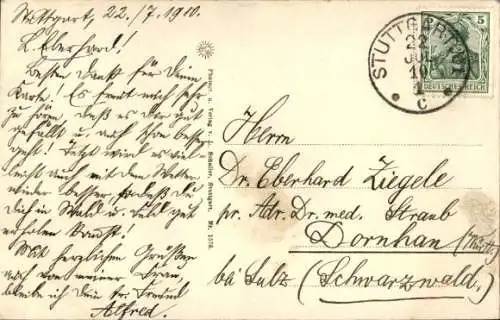 Stuttgart, 22./7. 1910.
L. Eberhard!
Besten Dank für Deine
Karte! Es freut mich sehr
zu hören, daß es Dir gut
gefällt u. auch schon besser
geht! Jetzt wird es viel-
leicht auch mit dem Wetter
wieder besser, sodaß Du
Dich in Wald u. Feld gut
erholen kannst!
Mit herzlichen Grüßen
auch von meiner Frau,
bleibe ich Dein tr. Freund
Alfred.
Stuttgart, Nr. 1078.
STUTTGART
22
JUL
10
C
5
DEUTSCHES REICH
Herrn
Dr. Eberhard Ziegele
pr. Adr. Dr. med. Straub
Dornhan (Württ.)
bei Sulz (Schwarzwald.)